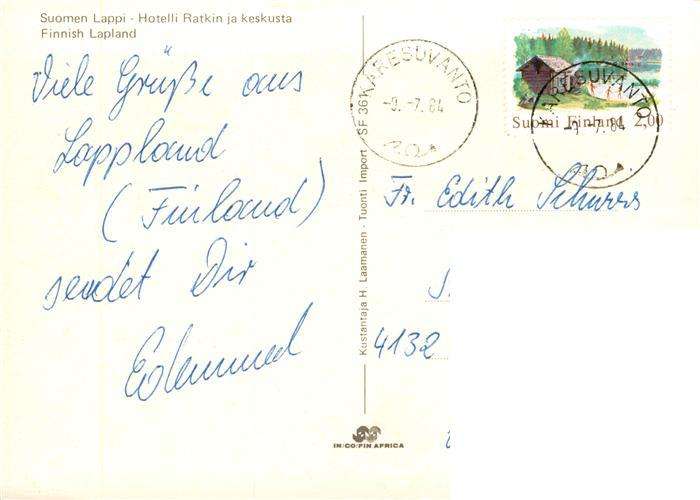 Suomen Lappi - Hotelli Ratkin ja keskusta
Finnish Lapland
Viele Grüße aus
Lappland
(Finland)
sendet Dir
KARESUVANTO
-9.-7.84
KARESUVANTO
-7.84
Suomi Finland 2,00
Kustantaja H. Laamanen - Tuonti Import - SF 36
Fr. Edith
4132
IN/CO/FIN AFRICA